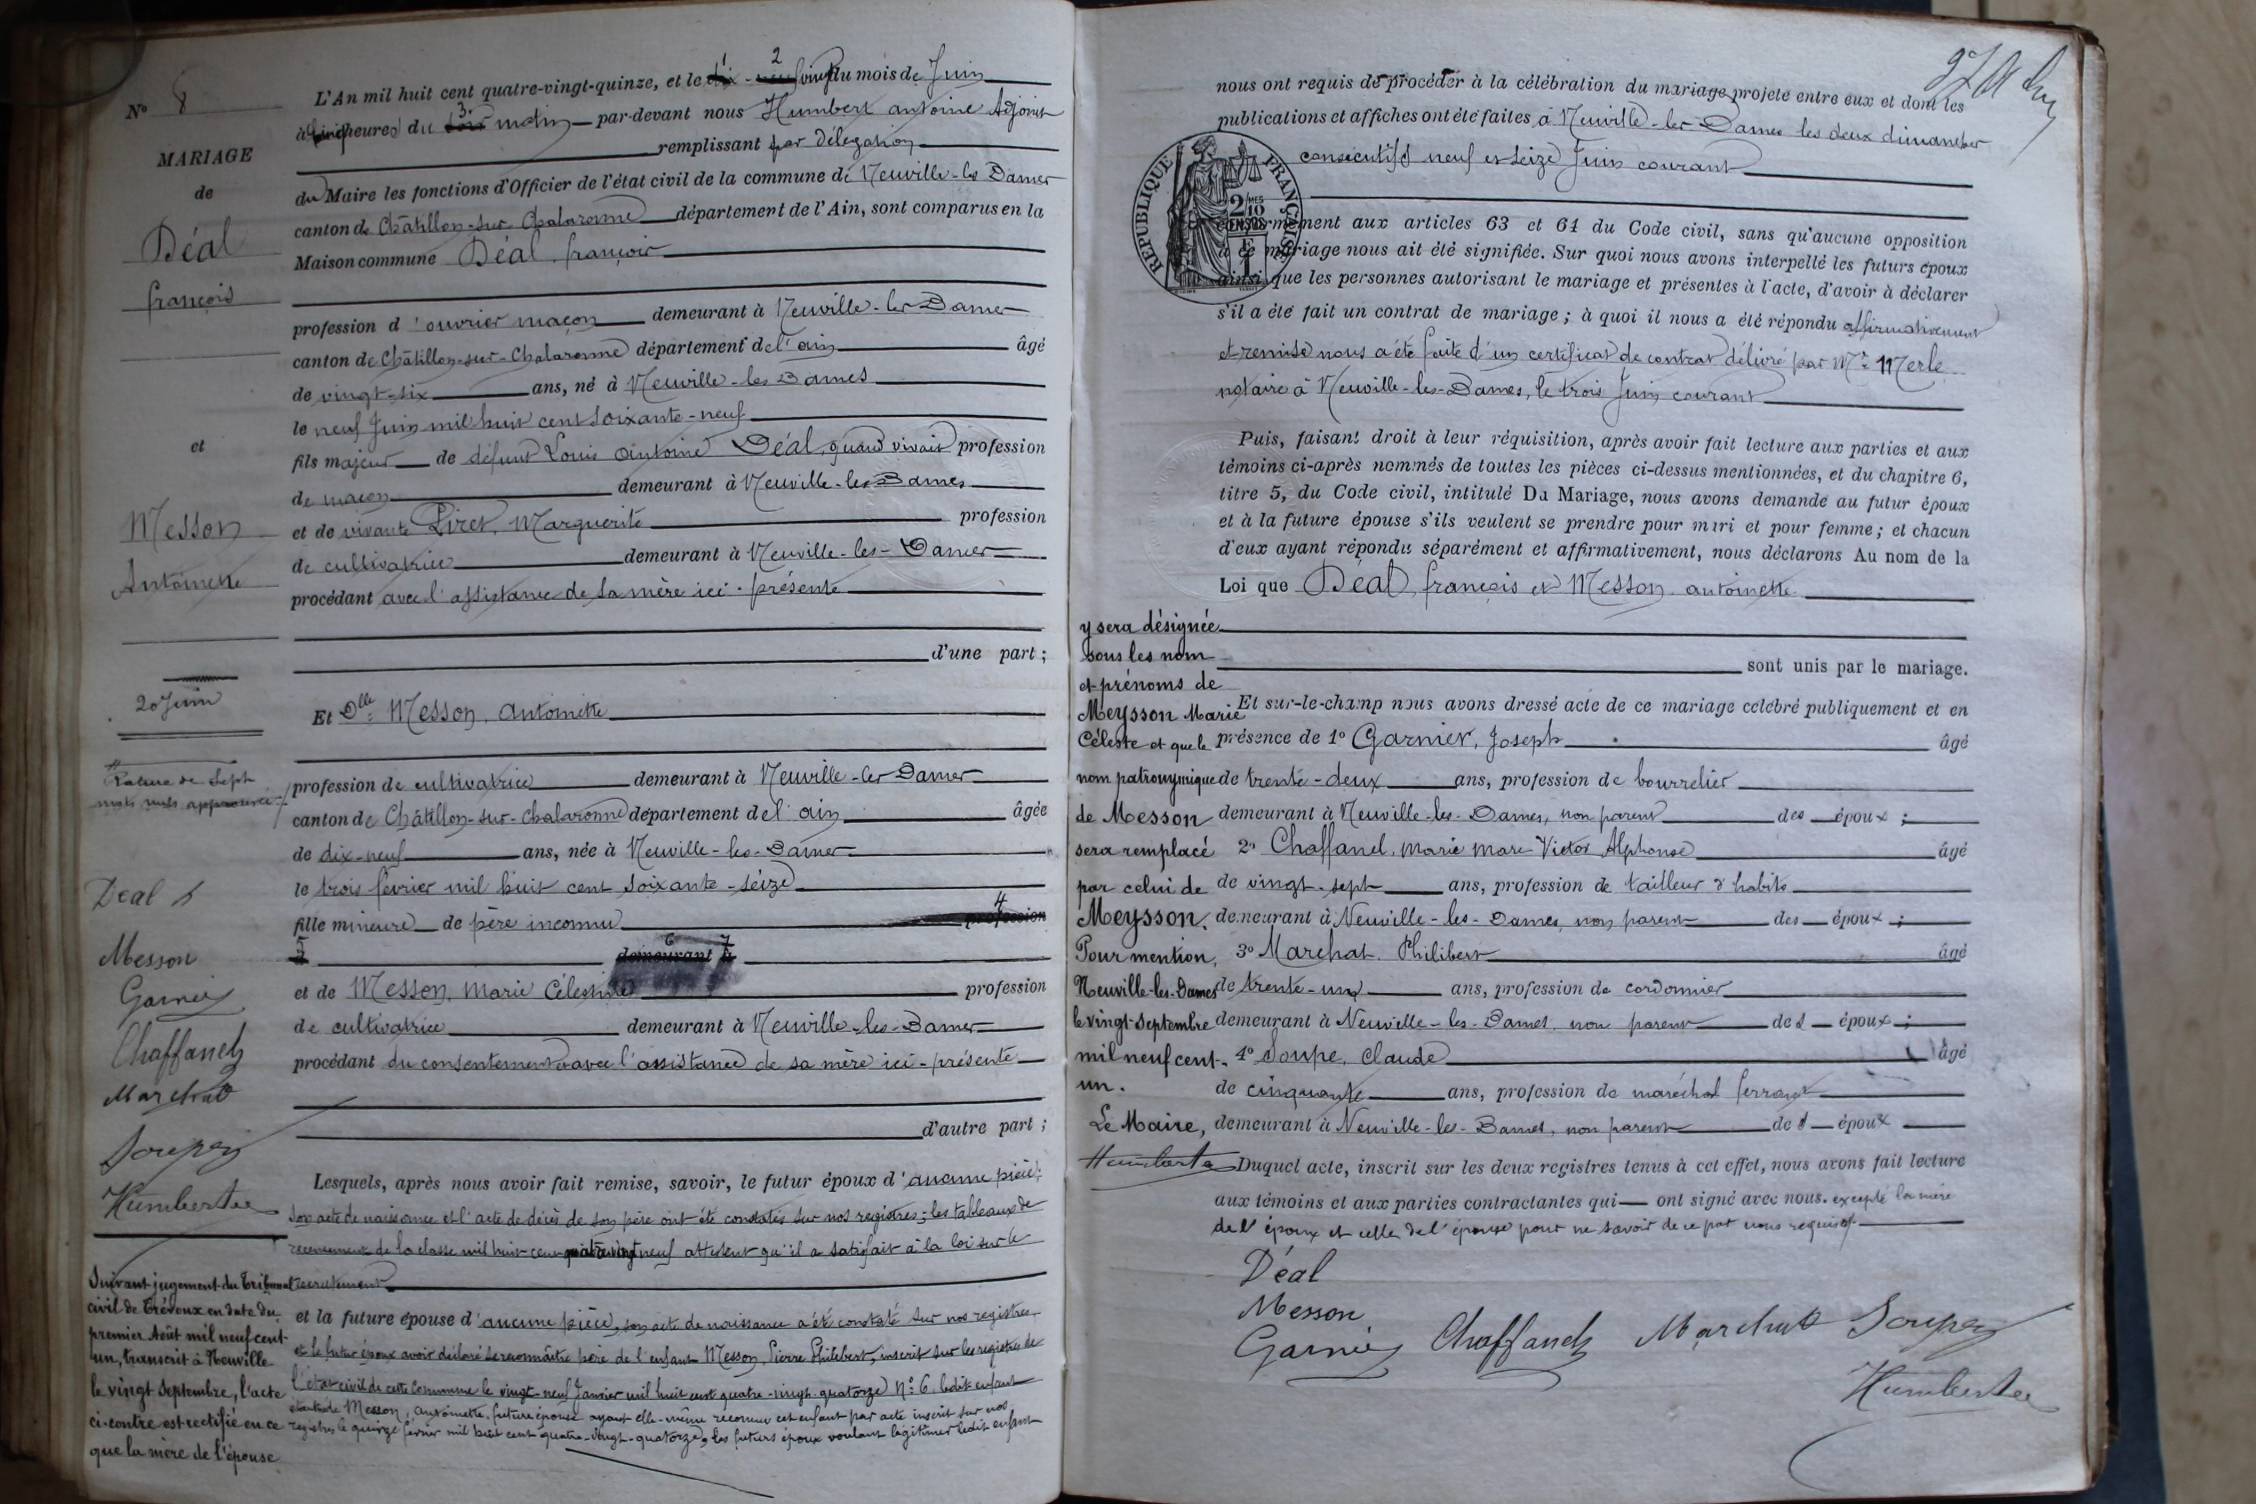 N° 8
MARIAGE
de
Déal
françois
et
Messon
Antoinette
20 Juin
Rature de sept
mots nuls approuvée
Déal f
Messon
Garnier
Chaffanel
Marchat
Soupe
Humbert
Suivant jugement du Tribunal
civil de Trévoux en date du
premier Août mil neuf cent
un, transcrit à Neuville
le vingt Septembre, l'acte
ci-contre est rectifié en ce
que la mère de l'épouse
L'An mil huit cent quatre-vingt-quinze, et le dix-neuf vingt du mois de Juin
à cinq heures du soir matin par-devant nous Humbert antoine Adjoint
remplissant par délégation
du Maire les fonctions d'Officier de l'état civil de la commune de Neuville-les Dames
canton de Châtillon-sur-Chalaronne département de l'Ain, sont comparus en la
Maison commune Déal, françois
profession d'ouvrier maçon demeurant à Neuville-les-Dames
canton de Châtillon-sur-Chalaronne département de l'ain âgé
de vingt-six ans, né à Neuville-les Dames
le neuf Juin mil huit cent soixante-neuf
fils majeur de défunt Louis antoine Déal, quand vivait profession
de maçon demeurant à Neuville-les-Dames
et de vivante Piret, Marguerite profession
de cultivatrice demeurant à Neuville-les-Dames
procédant avec l'assistance de sa mère ici-présente
d'une part ;
Et Dlle Messon, antoinette
profession de cultivatrice demeurant à Neuville-les-Dames
canton de Châtillon-sur-Chalaronne département de l'ain âgée
de dix-neuf ans, née à Neuville-les-Dames
le trois février mil huit cent soixante-seize
fille mineure de père inconnu profession
demeurant à
et de Messon, marie Célestine profession
de cultivatrice demeurant à Neuville-les-Dames
procédant du consentement & avec l'assistance de sa mère ici-présente
d'autre part ;
Lesquels, après nous avoir fait remise, savoir, le futur époux d'aucune pièce ;
son acte de naissance et l'acte de décès de son père ont été constatés sur nos registres ; les tableaux de
recensement de la classe mil huit cent quatre-vingt neuf attestent qu'il a satisfait à la loi sur le
recrutement
et la future épouse d'aucune pièce, son acte de naissance a été constaté sur nos registres
et le futur époux avoir déclaré se reconnaître père de l'enfant Messon, Pierre Philibert, inscrit sur les registres de
l'état civil de cette Commune le vingt-neuf Janvier mil huit cent quatre-vingt-quatorze N° 6, ledit enfant
Messon, antoinette, future épouse ayant elle-même reconnu cet enfant par acte inscrit sur nos
registres le quinze février mil huit cent quatre-vingt-quatorze, les futurs époux voulant légitimer ledit enfant
nous ont requis de procéder à la célébration du mariage projeté entre eux et dont les
publications et affiches ont été faites à Neuville-les-Dames les deux dimanches
consécutifs neuf et seize Juin courant
REPUBLIQUE FRANÇAISE
2/10 EN SUS
1 F
conformément aux articles 63 et 64 du Code civil, sans qu'aucune opposition
à ce mariage nous ait été signifiée. Sur quoi nous avons interpellé les futurs époux
ainsi que les personnes autorisant le mariage et présentes à l'acte, d'avoir à déclarer
s'il a été fait un contrat de mariage ; à quoi il nous a été répondu affirmativement
et remise nous a été faite d'un certificat de contrat délivré par Me Merle
notaire à Neuville-les-Dames, le trois Juin courant
Puis, faisant droit à leur réquisition, après avoir fait lecture aux parties et aux
témoins ci-après nommés de toutes les pièces ci-dessus mentionnées, et du chapitre 6,
titre 5, du Code civil, intitulé Du Mariage, nous avons demandé au futur époux
et à la future épouse s'ils veulent se prendre pour mari et pour femme ; et chacun
d'eux ayant répondu séparément et affirmativement, nous déclarons Au nom de la
Loi que Déal, françois et Messon, antoinette
sont unis par le mariage.
y sera désignée
sous les nom
et prénoms de
Meysson Marie
Céleste et que le
nom patronymique
de Messon
sera remplacé
par celui de
Meysson.
Pour mention,
Neuville-les-Dames
le vingt Septembre
mil neuf cent-
un.
Le Maire,
Humbert
Et sur-le-champ nous avons dressé acte de ce mariage célébré publiquement et en
présence de 1° Garnier, Joseph âgé
de trente-deux ans, profession de bourrelier
demeurant à Neuville-les-Dames, non parent des époux ;
2° Chaffanel, marie marc Victor Alphonse âgé
de vingt-sept ans, profession de tailleur d'habits
demeurant à Neuville-les-Dames, non parent des époux ;
3° Marchat, Philibert âgé
de trente-un ans, profession de cordonnier
demeurant à Neuville-les-Dames, non parent des époux ;
4° Soupe, Claude âgé
de cinquante ans, profession de maréchal ferrant
demeurant à Neuville-les-Dames, non parent des époux
Duquel acte, inscrit sur les deux registres tenus à cet effet, nous avons fait lecture
aux témoins et aux parties contractantes qui ont signé avec nous. excepté la mère
de l'époux et celle de l'épouse pour ne savoir de ce fait nous requises
Déal
Messon
Garnier Chaffanel Marchat Soupe
Humbert